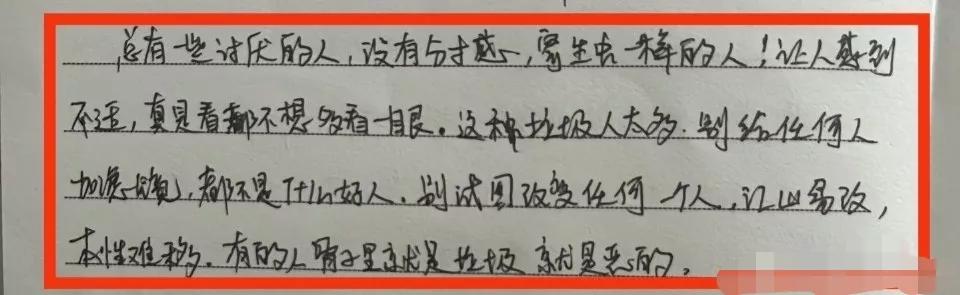 总有一些讨厌的人，没有分寸感，寄生虫一样的人！让人感到
不适，真是看都不想多看一眼。这种垃圾人太多.别给任何人
加滤镜，都不是什么好人.别试图改变任何一个人，江山易改，
本性难移.有的人骨子里就是垃圾 就是恶的.